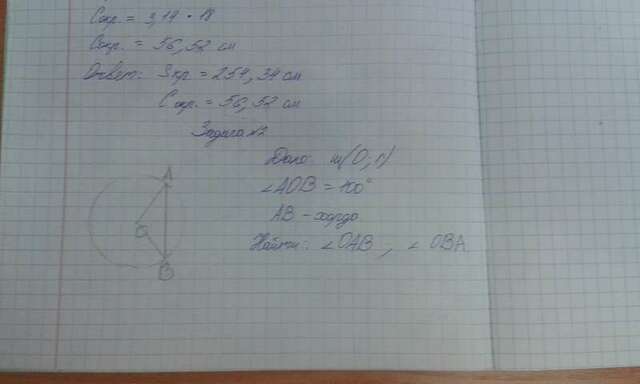 Сокр. = 3,14 • 18
Сокр. = 56,52 см
Ответ: Sкр. = 254,34 см
Сокр. = 56,52 см
Задача №2
Дано: ш(О; r)
∠AOB = 100°
AB - хорда
Найти: ∠OAB, ∠OBA
A
O
B